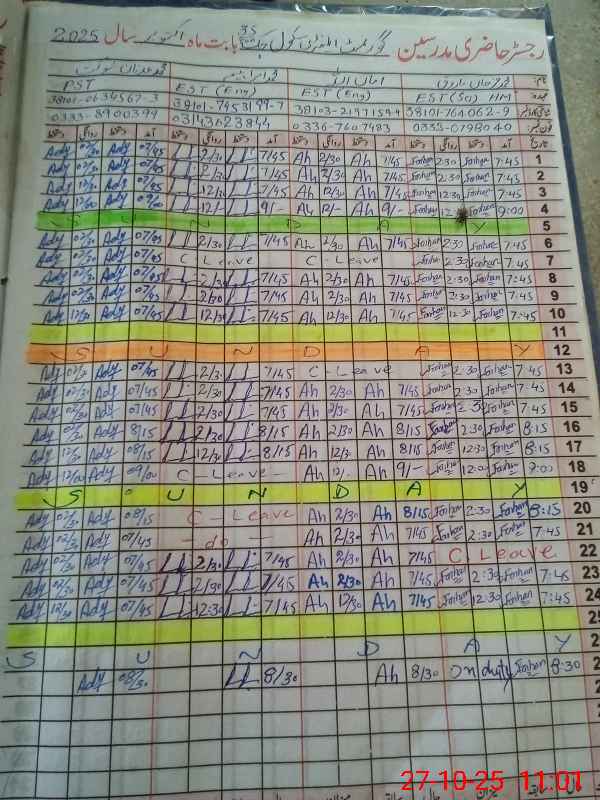 رجسٹر حاضری مدرسین گورنمنٹ ایلیمنٹری سکول چک 35 بابت ماہ اکتوبر سال 2025
PST EST (Eng) EST (Eng) EST (Sc) HM
38101-0634567-3 38101-7453199-7 38103-2197159-9 38101-7640062-9
0333-8900399 03143623844 0336-7607483 0333-6798040
Ady 02/30 Ady 07/45 2/30 7/45 Ah 2/30 Ah 7/45 Farhan 2:30 Farhan 7:45 1
Ady 02/30 Ady 07/45 2/30 7/45 Ah 2/30 Ah 7/45 Farhan 2:30 Farhan 7:45 2
Ady 07/45 12/30 7/45 Ah 12/30 Ah 7/45 Farhan 12:30 Farhan 7:45 3
Ady 12/00 Ady 09/00 12/- 9/- Ah 12/- Ah 9/- Farhan Farhan 9:00 4
S U N D A Y 5
Ady 02/30 Ady 07/45 2/30 7/45 Ah 2/30 Ah 7/45 Farhan 2:30 Farhan 7:45 6
Ady 02/30 Ady 07/45 C Leave C - Leave Farhan 2:30 Farhan 7:45 7
Ady 02/30 Ady 07/45 2/30 7/45 Ah 2/30 Ah 7/45 Farhan 2:30 Farhan 7:45 8
Ady 02/30 Ady 07/45 2/30 7/45 Ah 2/30 Ah 7/45 Farhan 2:30 Farhan 7:45 9
Ady 12/30 Ady 07/45 12/30 7/45 Ah 12/30 Ah 7/45 Farhan 12:30 Farhan 7:45 10
11
S U N D A Y 12
Ady 02/30 Ady 07/45 2/30 7/45 C - Leave Farhan 2:30 Farhan 7:45 13
Ady 02/30 Ady 07/45 2/30 7/45 Ah 2/30 Ah 7/45 Farhan 2:30 Farhan 7:45 14
Ady 02/30 Ady 07/45 2/30 7/45 Ah 2/30 Ah 7/45 Farhan Farhan 7:45 15
Ady 02/30 Ady 8/15 2/30 8/15 Ah 2/30 Ah 8/15 Farhan 2:30 Farhan 8:15 16
Ady 12/30 Ady 08/15 12/30 8/15 Ah 12/30 Ah 8/15 Farhan 12:30 Farhan 8:15 17
Ady 12/00 Ady 09/00 C - Leave - Ah 12/- Ah 9/- Farhan 12:00 Farhan 9:00 18
S U N D A Y 19
Ady 02/30 Ady 08/15 C - Leave Ah 2/30 Ah 8/15 Farhan 2:30 Farhan 8:15 20
Ady 02/30 Ady 07/45 - do - Ah 2/30 Ah 7/45 Farhan 2:30 Farhan 7:45 21
Ady 02/30 Ady 07/45 2/30 7/45 Ah 2/30 Ah 7/45 C Leave 22
Ady 02/30 Ady 07/45 2/30 7/45 Ah 2/30 Ah 7/45 Farhan 2:30 Farhan 7:45 23
Ady 12/30 Ady 07/45 12:30 7/45 Ah 12/30 Ah 7/45 Farhan 12:30 Farhan 7:45 24
S U N D A Y
Ady 08/30 8/30 Ah 8/30 On duty Farhan 8:30
27-10-25 11:01